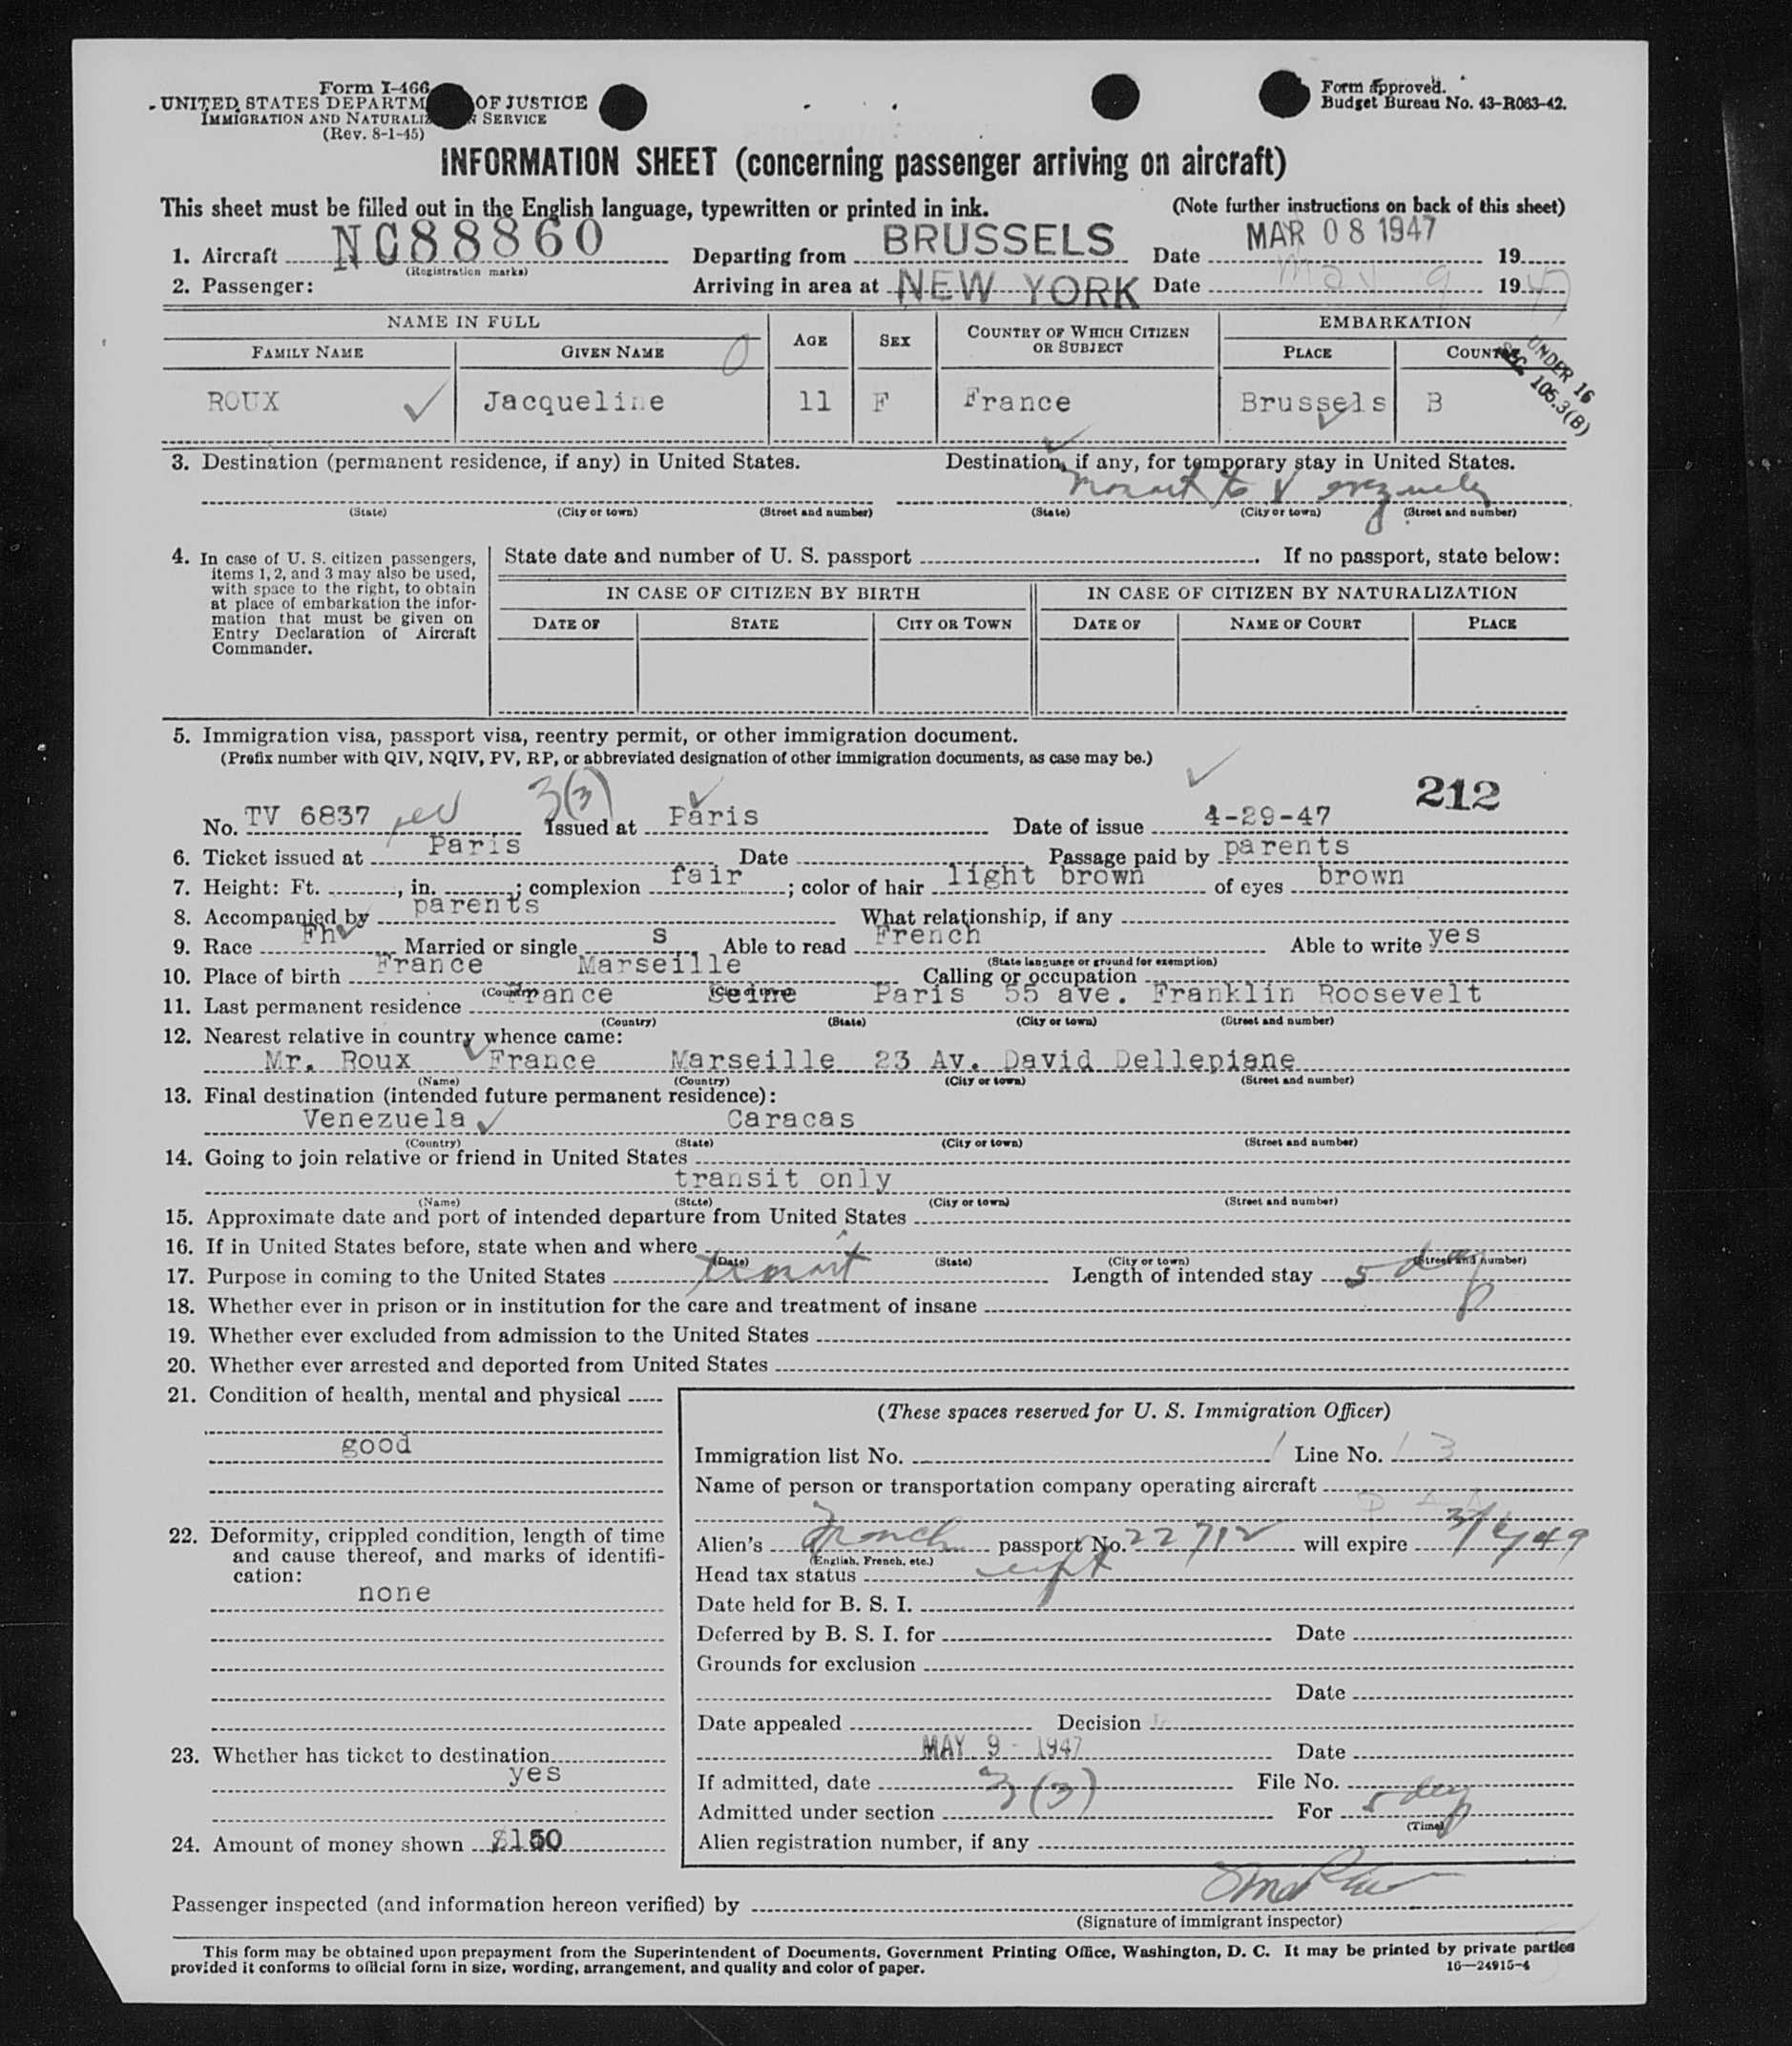 Form I-466
UNITED STATES DEPARTM OF JUSTICE
IMMIGRATION AND NATURALIZ N SERVICE
(Rev. 8-1-45)
Form approved.
Budget Bureau No. 43-R063-42.
INFORMATION SHEET (concerning passenger arriving on aircraft)
This sheet must be filled out in the English language, typewritten or printed in ink. (Note further instructions on back of this sheet)
1. Aircraft NC88860 Departing from BRUSSELS Date MAR 08 1947 19
(Registration marks)
2. Passenger: Arriving in area at NEW YORK Date May 9 1947
NAME IN FULL AGE SEX COUNTRY OF WHICH CITIZEN OR SUBJECT EMBARKATION
FAMILY NAME GIVEN NAME PLACE COUNT
UNDER 16
SEC. 105.3(B)
ROUX Jacqueline 11 F France Brussels B
3. Destination (permanent residence, if any) in United States. Destination, if any, for temporary stay in United States.
to Venezuela
(State) (City or town) (Street and number) (State) (City or town) (Street and number)
4. In case of U. S. citizen passengers,
items 1, 2, and 3 may also be used,
with space to the right, to obtain
at place of embarkation the infor-
mation that must be given on
Entry Declaration of Aircraft
Commander.
State date and number of U. S. passport . If no passport, state below:
IN CASE OF CITIZEN BY BIRTH IN CASE OF CITIZEN BY NATURALIZATION
DATE OF STATE CITY OR TOWN DATE OF NAME OF COURT PLACE
5. Immigration visa, passport visa, reentry permit, or other immigration document.
(Prefix number with QIV, NQIV, PV, RP, or abbreviated designation of other immigration documents, as case may be.)
3(3) 212
No. TV 6837 Issued at Paris Date of issue 4-29-47
6. Ticket issued at Paris Date Passage paid by parents
7. Height: Ft. , in. ; complexion fair ; color of hair light brown of eyes brown
8. Accompanied by parents What relationship, if any
9. Race Fh Married or single s Able to read French Able to write yes
(State language or ground for exemption)
10. Place of birth France Marseille Calling or occupation
(Country) (City or town)
11. Last permanent residence France Seine Paris 55 ave. Franklin Roosevelt
(Country) (State) (City or town) (Street and number)
12. Nearest relative in country whence came:
Mr. Roux France Marseille 23 Av. David Dellepiane
(Name) (Country) (City or town) (Street and number)
13. Final destination (intended future permanent residence):
Venezuela Caracas
(Country) (State) (City or town) (Street and number)
14. Going to join relative or friend in United States
transit only
(Name) (State) (City or town) (Street and number)
15. Approximate date and port of intended departure from United States
16. If in United States before, state when and where
(Date) (State) (City or town) (Street and number)
17. Purpose in coming to the United States Length of intended stay 5
18. Whether ever in prison or in institution for the care and treatment of insane
19. Whether ever excluded from admission to the United States
20. Whether ever arrested and deported from United States
21. Condition of health, mental and physical
good
22. Deformity, crippled condition, length of time
and cause thereof, and marks of identifi-
cation:
none
23. Whether has ticket to destination
yes
24. Amount of money shown $150
(These spaces reserved for U. S. Immigration Officer)
Immigration list No. 1 Line No. 13
Name of person or transportation company operating aircraft
P A A
Alien's French passport No. 22712 will expire
(English, French, etc.)
Head tax status
Date held for B. S. I.
Deferred by B. S. I. for Date
Grounds for exclusion
Date
Date appealed Decision
Date
If admitted, date MAY 9 - 1947 File No.
Admitted under section 3(3) For 5
(Time)
Alien registration number, if any
Passenger inspected (and information hereon verified) by
(Signature of immigrant inspector)
This form may be obtained upon prepayment from the Superintendent of Documents, Government Printing Office, Washington, D. C. It may be printed by private parties
provided it conforms to official form in size, wording, arrangement, and quality and color of paper. 16—24915-4